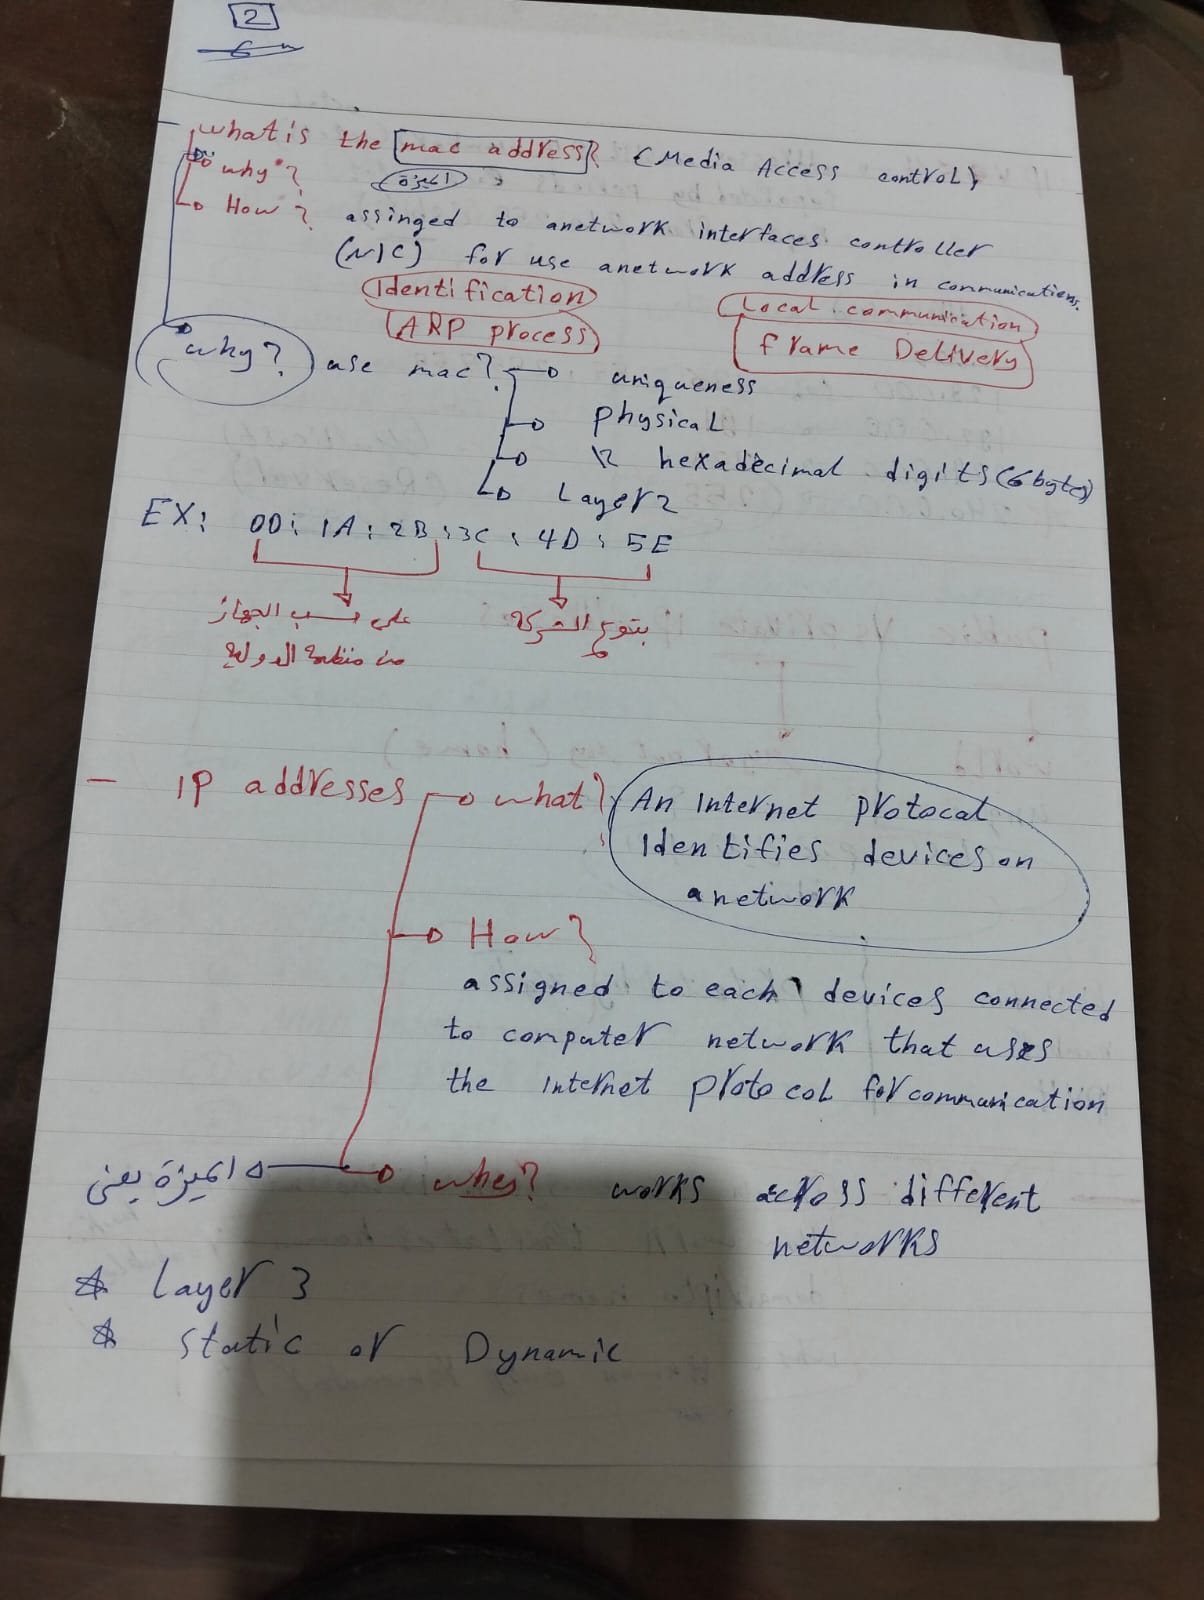 2
what is the mac address? (Media Access control)
why?
الميزة
How? assinged to anetwork interfaces controller
(NIC) for use anetwork address in communications.
Identification
Local communication
ARP process
frame Delivery
why? use mac?
uniqueness
physical
12 hexadecimal digits (6 bytes)
Layer 2
EX: 00: 1A: 2B: 3C : 4D : 5E
على حسب الجهاز
بتوع الشركة
من منظمة الدولية
- IP addresses
what?
An Internet protocal
Identifies devices on
a network
How?
assigned to each devices connected
to computer network that uses
the Internet protocol for communication
الميزة يعني
whey? works across different
networks
Layer 3
static or Dynamic